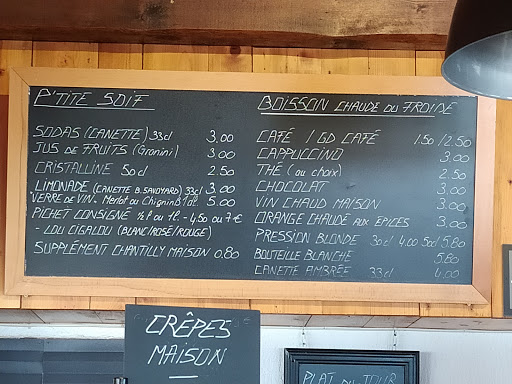 P'TITE SOIF
SODAS (CANETTE) 33cl 3,00
JUS DE FRUITS (Granini) 3,00
CRISTALLINE 50cl 2.50
LIMONADE (CANETTE B.SAVOYARD) 33cl 3,00
VERRE DE VIN. Merlot ou Chignin 1dl. 5.00
PICHET CONSIGNÉ ½l ou 1l. - 4,50 ou 7€
- LOU CIGALOU (BLANC/ROSÉ/ROUGE)
SUPPLÉMENT CHANTILLY MAISON 0.80
BOISSON CHAUDE OU FROIDE
CAFÉ / GD CAFÉ 1.50 / 2.50
CAPPUCCINO 3,00
THÉ (au choix) 2.50
CHOCOLAT 3,00
VIN CHAUD MAISON 3,00
ORANGE CHAUDE AUX EPICES 3.00
PRESSION BLONDE 30cl 4,00 50cl 5.80
BOUTEILLE BLANCHE 5.80
CANETTE AMBRÉE 33cl 4,00
CRÊPES
MAISON
PLAT DU JOUR